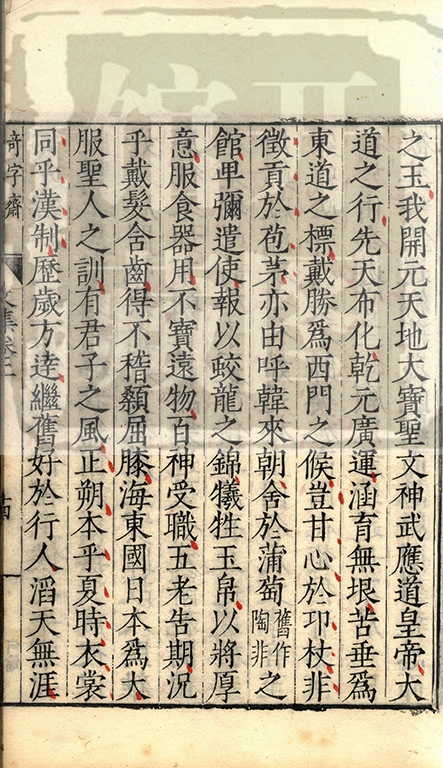 之玉我開元天地大寶聖文神武應道皇帝大
道之行先天布化乾元廣運涵育無垠苦垂為
東道之標戴勝為西門之候豈甘心於卭杖非
徵貢於苞茅亦由呼韓來朝舍於蒲萄舊作陶非之
館卑彌遣使報以蛟龍之錦犧牲玉帛以將厚
意服食器用不寶遠物百神受職五老告期況
乎戴髮含齒得不稽顙屈膝海東國日本為大
服聖人之訓有君子之風正朔本乎夏時衣裳
同乎漢制歷歲方達繼舊好於行人滔天無涯
奇字齋
文集卷十二